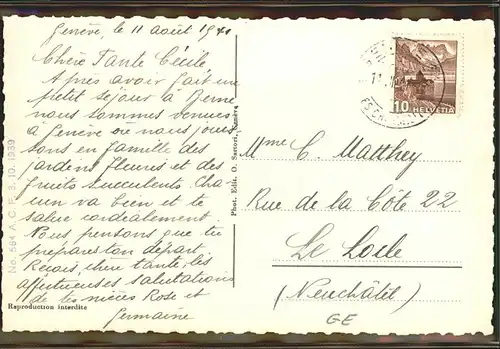 Genève, le 11 août 1941
Chère Tante Cécile
Après avoir fait un
petit séjour à Berne
nous sommes venues
à Genève où nous jouis-
sons en famille des
jardins fleuris et des
fruits succulents. Cha-
cun va bien et te
salue cordialement.
Nous pensons que tu
prépares ton départ
Reçois, chère tante, les
affectueuses salutations
de tes nièces Rose et
Germaine
Reproduction interdite
No. 564 A. C. F. 3. 10. 1939
Phot. Edit. O. Sartori, Genève
10 HELVETIA
Mme C. Matthey
Rue de la Côte 22
Le Locle
(Neuchâtel)
GE